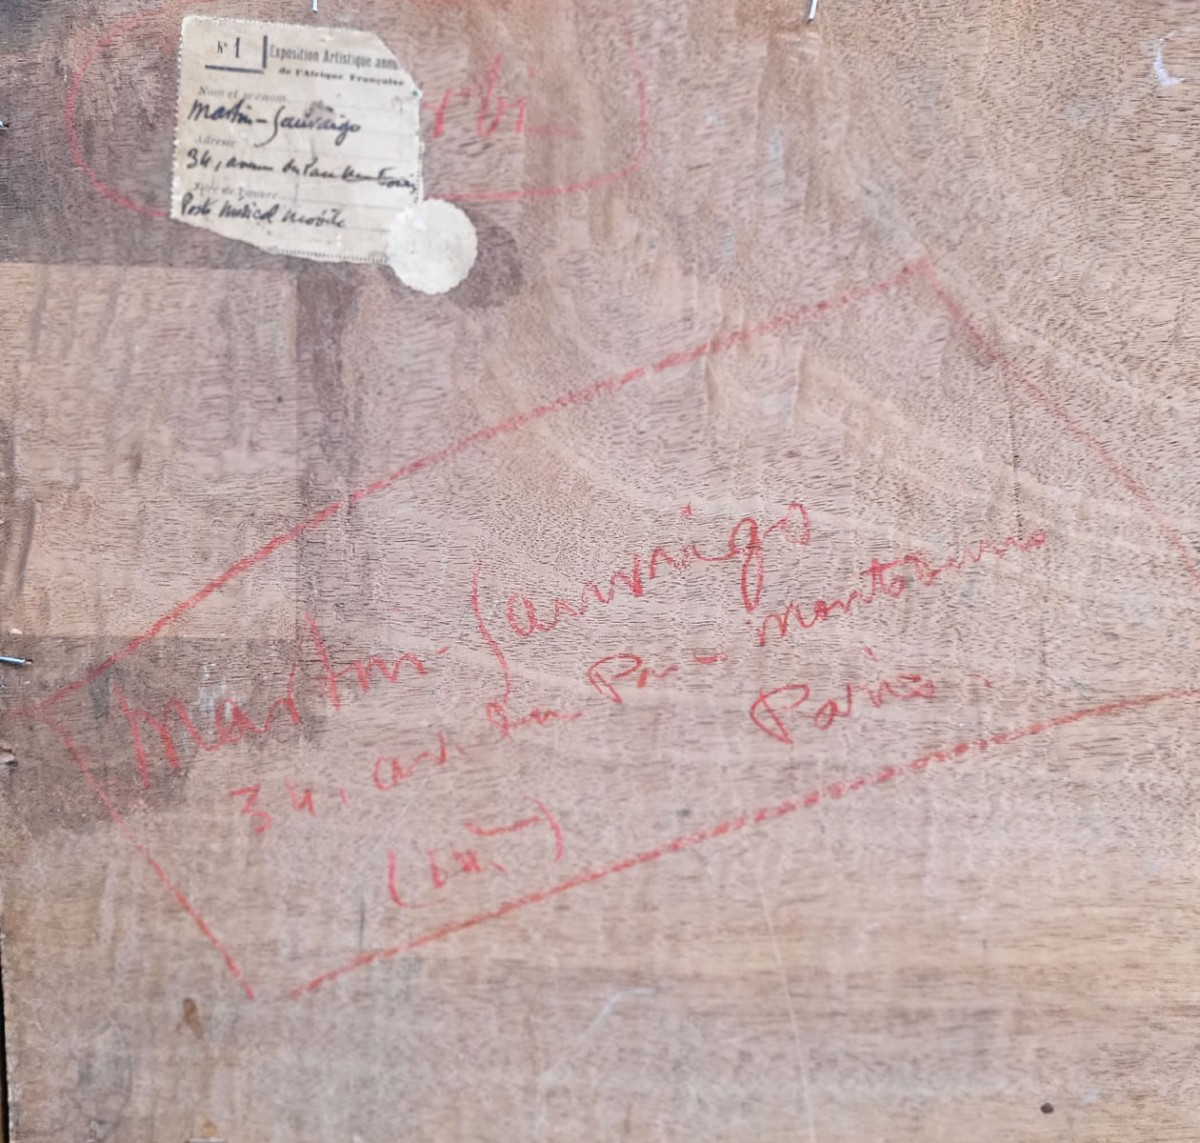 N° 1
Exposition Artistique ann
de l'Afrique Française
Nom et prénom
Martin-Sauvaigo
Adresse
34, avenue du Parc Montsouris
Titre de l'œuvre
Poste médical mobile
Martin-Sauvaigo
34, av. du Parc-Montsouris
Paris
(14e)